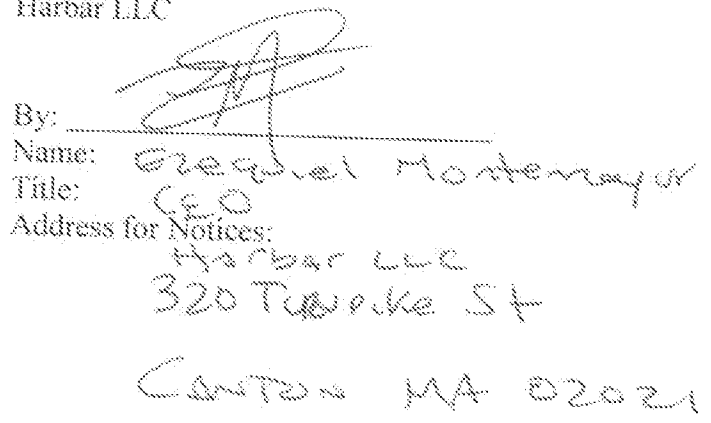 Harbar LLC
By:
Name: Ezequiel Montemayor
Title: CEO
Address for Notices:
Harbar LLC
320 Turnpike St
Canton MA 02021